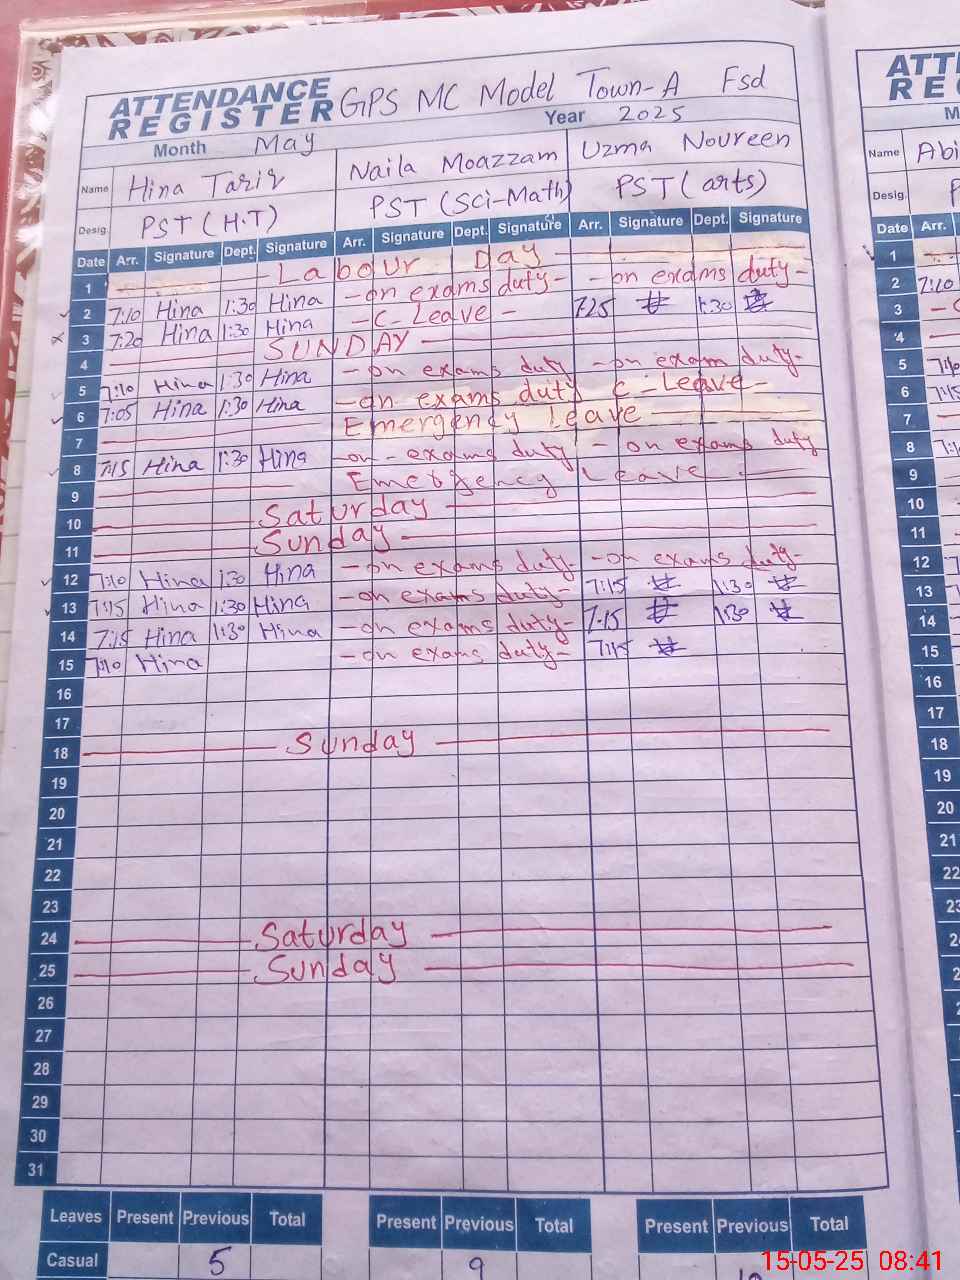 ATTENDANCE REGISTER GPS MC Model Town-A Fsd
Month May Year 2025
Name Hina Tariq Naila Moazzam Uzma Noureen
Desig. PST (H.T) PST (Sci-Math) PST (arts)
Date Arr. Signature Dept. Signature Arr. Signature Dept. Signature Arr. Signature Dept. Signature
1 Labour Day
2 7:10 Hina 1:30 Hina -on exams duty- -on exams duty-
3 7:20 Hina 1:30 Hina -C- Leave - 725 1:30
4 SUNDAY
5 7:10 Hina 1:30 Hina -on exams duty -on exam duty-
6 7:05 Hina 1:30 Hina -on exams duty C-Leave-
7 Emergency leave
8 7:15 Hina 1:30 Hina -on-exams duty - on exams duty
9 Emergency Leave
10 Saturday
11 Sunday
12 7:10 Hina 1:30 Hina -on exams duty- -on exams duty-
13 7:15 Hina 1:30 Hina -on exams duty- 7:15 1:30
14 7:15 Hina 1:30 Hina -on exams duty- 7:15 1:30
15 7:10 Hina -on exams duty- 7:15
16
17
18 Sunday
19
20
21
22
23
24 Saturday
25 Sunday
26
27
28
29
30
31
Leaves Present Previous Total Present Previous Total Present Previous Total
Casual 5 9
ATT
REG
M
Name Abi
Desig. P
Date Arr.
1
2 7:10
3 - C
4
5 7:10
6 7:15
7
8
9
10
11
12
13
14
15
16
17
18
19
20
21
22
23
15-05-25 08:41